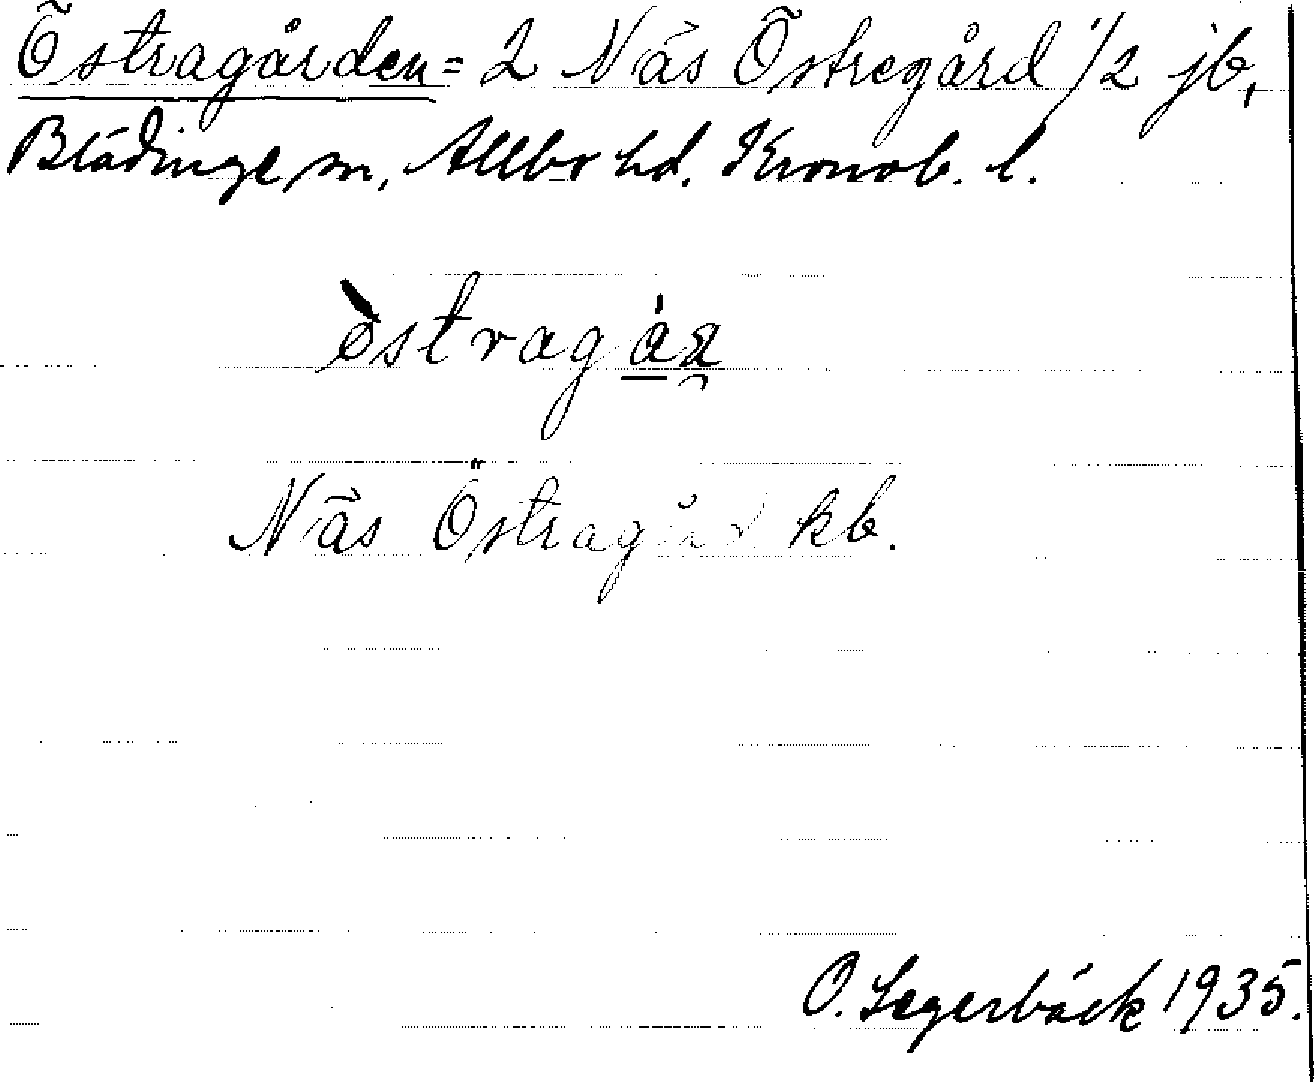 Östragården = 2 Näs Östregård 1/2 jb,
Blädinge sn, Allbo hd. Kronob. l.
Näs Östragård kb.
O. Segerbäck 1935.